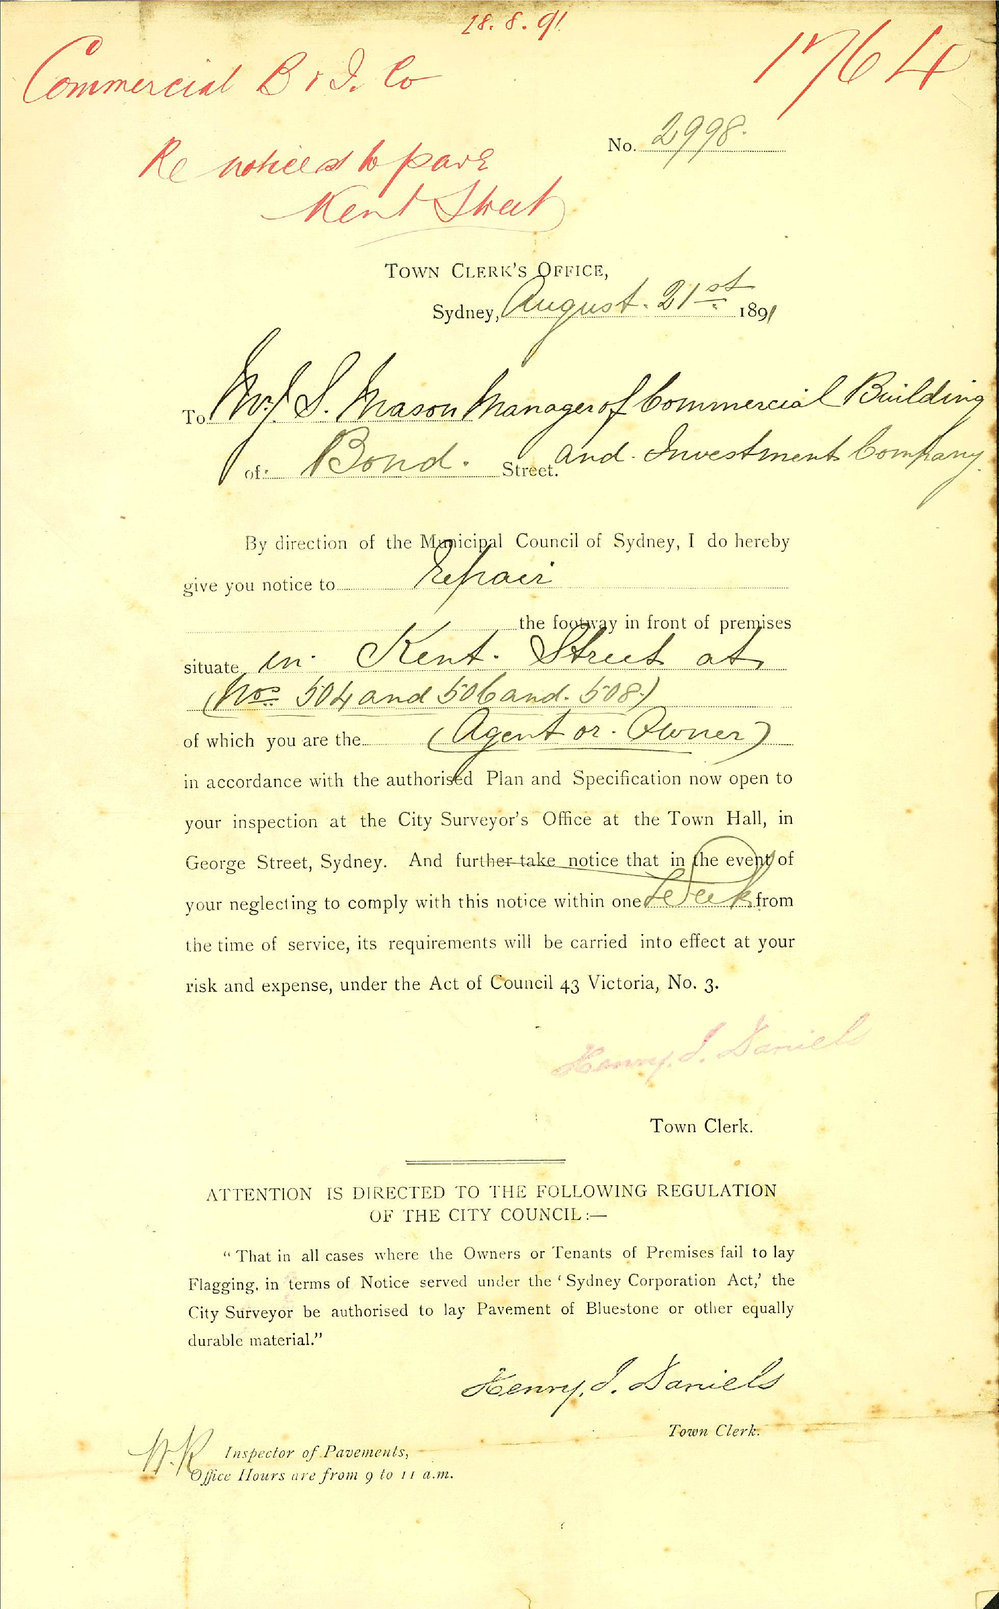 28. 8. 91
Commercial B & I. Co
1764
Re notices to pave
Kent Street
No. 2998.
TOWN CLERK'S OFFICE,
Sydney, August. 21st 1891
To Mr J. S. Mason Manager of Commercial Building
of Bond. Street. and. Investment Company.
By direction of the Municipal Council of Sydney, I do hereby
give you notice to repair
the footway in front of premises
situate in. Kent. Street at
(Nos 504 and 506 and. 508)
of which you are the (Agent or. Owner)
in accordance with the authorised Plan and Specification now open to
your inspection at the City Surveyor's Office at the Town Hall, in
George Street, Sydney. And further take notice that in the event of
your neglecting to comply with this notice within one Week from
the time of service, its requirements will be carried into effect at your
risk and expense, under the Act of Council 43 Victoria, No. 3.
Henry. J. Daniels
Town Clerk.
ATTENTION IS DIRECTED TO THE FOLLOWING REGULATION
OF THE CITY COUNCIL:—
"That in all cases where the Owners or Tenants of Premises fail to lay
Flagging, in terms of Notice served under the 'Sydney Corporation Act,' the
City Surveyor be authorised to lay Pavement of Bluestone or other equally
durable material."
Henry. J. Daniels
Town Clerk.
W.R. Inspector of Pavements,
Office Hours are from 9 to 11 a.m.